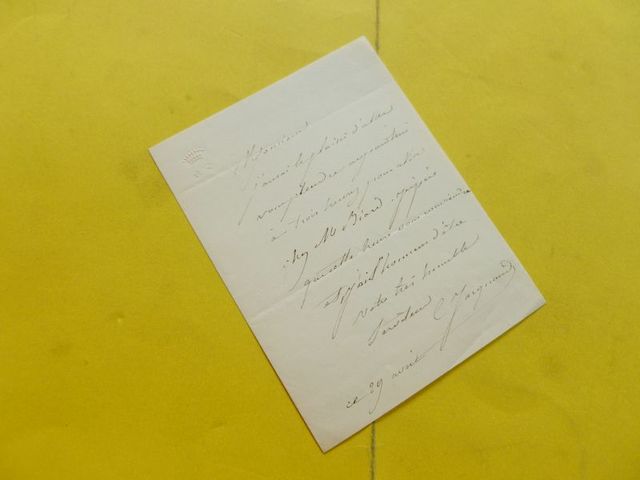 Monsieur
j'aurai le plaisir d'aller
vous prendre aujourd'hui
à trois heures pour aller
chez Mr Biard. j'espère
que cette heure vous conviendra
et j'ai l'honneur d'être
votre très humble
Serviteur
ce 29 avril